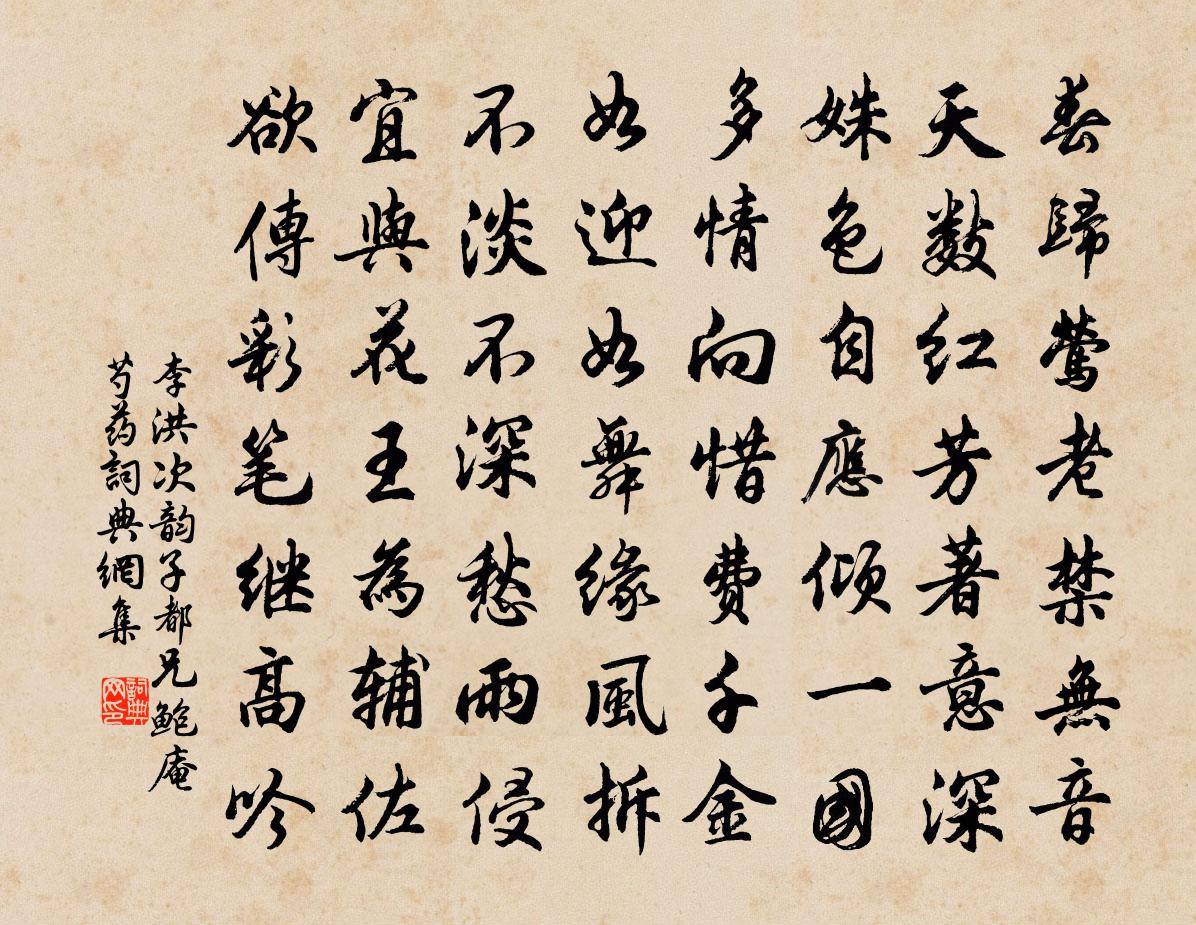 春歸鶯老禁無音
天數红芳著意深
姝色自應倾一國
多情向惜费千金
如迎如舞缘風拆
不淡不深愁雨侵
宜與花王為辅佐
欲傳彩笔继高吟
李洪次韵子都兄鲍庵
芍药詞典網集
詞典网印